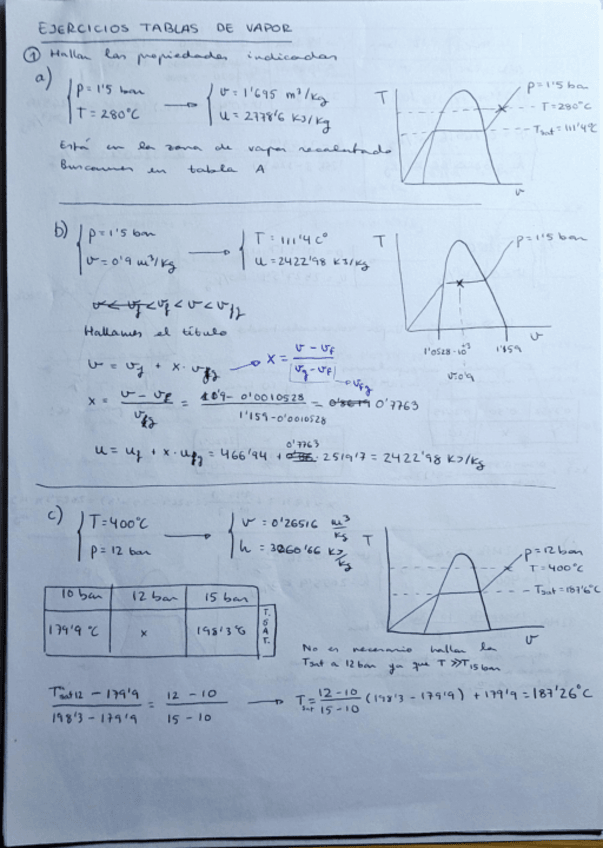 EJERCICIOS TABLAS DE VAPOR
① Hallar las propiedades indicadas
a)
p = 1'5 bar
T = 280°C
→
v = 1'695 m³/kg
u = 2778'6 KJ/kg
Está en la zona de vapor recalentado
Buscamos en tabla A
T
p = 1'5 bar
T = 280°C
Tsat = 111'4°C
v
b)
p = 1'5 bar
v = 0'9 m³/kg
→
T = 111'4 C°
u = 2422'98 KJ/kg
vf < v < vg
Hallamos el título
v = vf + x · vfg → x = (v - vf) / (vg - vf)
vfg
x = (v - vf) / vfg = (0'9 - 0'0010528) / (1'159 - 0'0010528) = 0'7763
u = uf + x · ufg = 466'94 + 0'7763 · 2519'7 = 2422'98 KJ/kg
T
p = 1'5 bar
v
1'0528·10⁺³
1'159
v=0'9
c)
T = 400°C
p = 12 bar
→
v = 0'26516 m³/kg
h = 3260'66 KJ/kg
10 bar 12 bar 15 bar
179'9 °C x 198'3 °C
T. SAT.
T
p = 12 bar
T = 400°C
Tsat = 187'6°C
v
No es necesario hallar la
Tsat a 12 bar ya que T >> T15 bar
(Tsat12 - 179'9) / (198'3 - 179'9) = (12 - 10) / (15 - 10) → Tsat = (12 - 10) / (15 - 10) (198'3 - 179'9) + 179'9 = 187'26°C